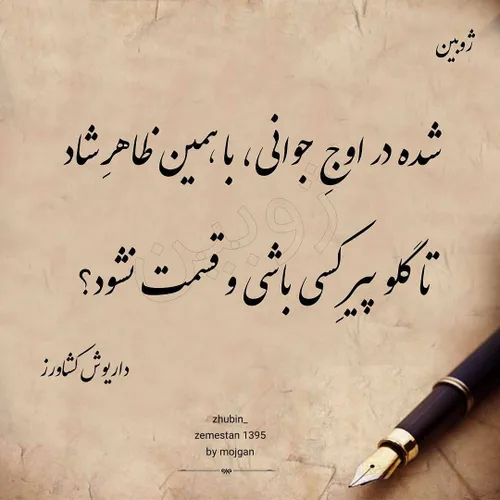 ژوبین
شده در اوجِ جوانی، با همین ظاهرِ شاد
ژوبین
تا گلو پیرِ کسی باشی و قسمت نشود؟
داریوش کشاورز
@zhubin_
zemestan 1395
by mojgan